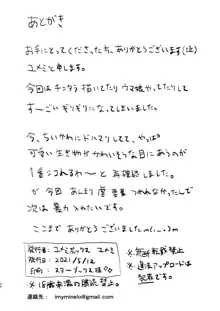 あとがき
お手にとってくださった方、ありがとうございます(泣)
ユメミと申します。
今回はチンタラ描いてたりウマ娘やってたりして
すーごいギリギリになってしまいました。
今、ちいかわにドハマリしてて、やっぱ
可愛い生き物がかわいそうな目にあうのが
1番シコれるわ〜 と再確認しました。
が 今回 あんまり 虐 要素 つめれなかったんで
次は 暴力 入れたいです。
ここまで ありがとうございましたm(._.)m
発行者:ユメミボックス ユメミ
発行日:2021/5/12
印刷:スターブックス様
※18歳未満の購読禁止
※無断転載禁止
※違法アップロードは
犯罪です。
連絡先: imyminelo@gmail.com